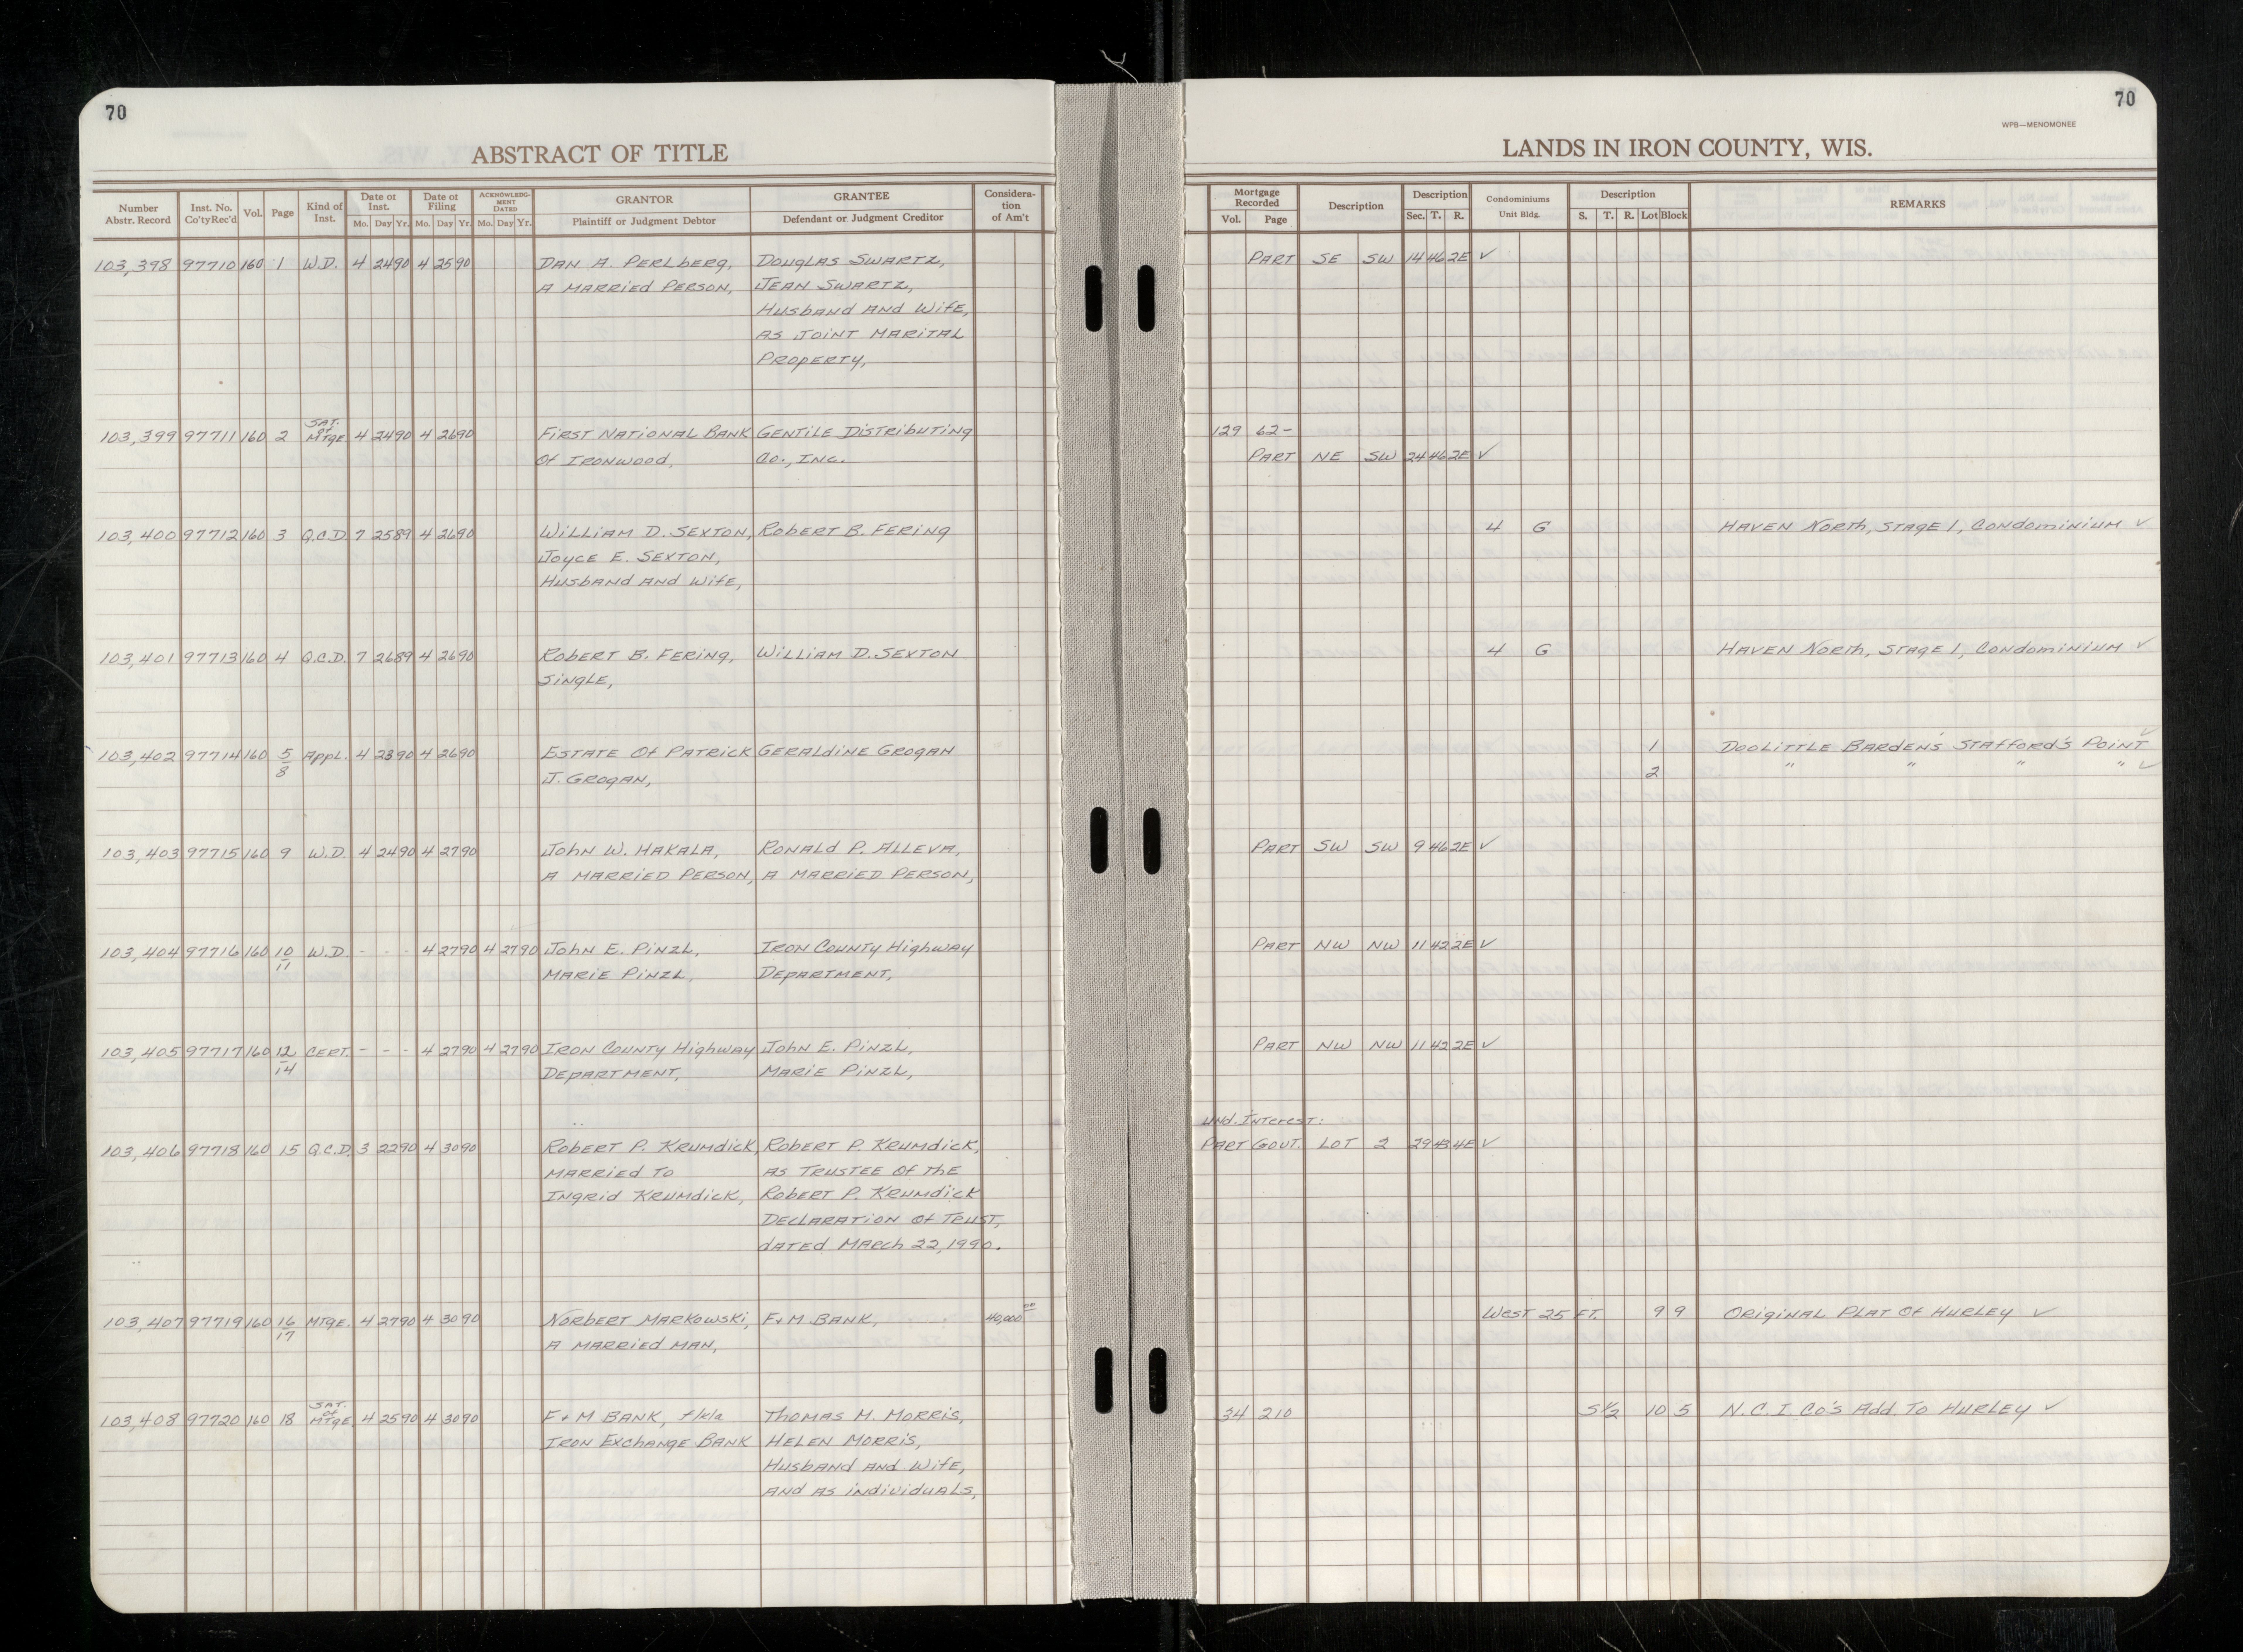 70
70
WPB—MENOMONEE
ABSTRACT OF TITLE
LANDS IN IRON COUNTY, WIS.
Number Abstr. Record | Inst. No. Co'ty Rec'd | Vol. | Page | Kind of Inst. | Date of Inst. Mo. Day Yr. | Date of Filing Mo. Day Yr. | ACKNOWLEDGMENT DATED Mo. Day Yr. | GRANTOR Plaintiff or Judgment Debtor | GRANTEE Defendant or Judgment Creditor | Consideration of Am't | Mortgage Recorded Vol. Page | Description | Description Sec. T. R. | Condominiums Unit Bldg. | Description S. T. R. Lot Block | REMARKS
103,398 97710 160 1 W.D. 4 24 90 4 25 90 DAN A. PERLBERG, DOUGLAS SWARTZ, PART SE SW 14 46 2E ✓
A MARRIED PERSON, JEAN SWARTZ,
HUSBAND AND WIFE,
AS JOINT MARITAL
PROPERTY,
SAT. of
103,399 97711 160 2 MTGE 4 24 90 4 26 90 FIRST NATIONAL BANK GENTILE DISTRIBUTING 129 62-
OF IRONWOOD, CO., INC. PART NE SW 24 46 2E ✓
103,400 97712 160 3 Q.C.D. 7 25 89 4 26 90 WILLIAM D. SEXTON, ROBERT B. FERING 4 G HAVEN NORTH, STAGE 1, CONDOMINIUM ✓
JOYCE E. SEXTON,
HUSBAND AND WIFE,
103,401 97713 160 4 Q.C.D. 7 26 89 4 26 90 ROBERT B. FERING, WILLIAM D. SEXTON 4 G HAVEN NORTH, STAGE 1, CONDOMINIUM ✓
SINGLE,
103,402 97714 160 5/8 APPL. 4 23 90 4 26 90 ESTATE OF PATRICK GERALDINE GROGAN 1 DOOLITTLE BARDEN'S STAFFORD'S POINT ✓
J. GROGAN, 2 " " " " ✓
103,403 97715 160 9 W.D. 4 24 90 4 27 90 JOHN W. HAKALA, RONALD P. ALLEVA, PART SW SW 9 46 2E ✓
A MARRIED PERSON, A MARRIED PERSON,
103,404 97716 160 10/11 W.D. - - - 4 27 90 4 27 90 JOHN E. PINZL, IRON COUNTY HIGHWAY PART NW NW 11 42 2E ✓
MARIE PINZL, DEPARTMENT,
103,405 97717 160 12/14 CERT. - - - 4 27 90 4 27 90 IRON COUNTY HIGHWAY JOHN E. PINZL, PART NW NW 11 42 2E ✓
DEPARTMENT, MARIE PINZL,
UND. INTEREST:
103,406 97718 160 15 Q.C.D. 3 22 90 4 30 90 ROBERT P. KRUMDICK, ROBERT P. KRUMDICK, PART GOVT. LOT 2 29 43 4E ✓
MARRIED TO AS TRUSTEE OF THE
INGRID KRUMDICK, ROBERT P. KRUMDICK
DECLARATION OF TRUST,
DATED MARCH 22, 1990.
103,407 97719 160 16/17 MTGE. 4 27 90 4 30 90 NORBERT MARKOWSKI, F+M BANK, 40,000 00 WEST 25 FT. 9 9 ORIGINAL PLAT OF HURLEY ✓
A MARRIED MAN,
SAT. of
103,408 97720 160 18 MTGE 4 25 90 4 30 90 F+M BANK, f/k/a THOMAS M. MORRIS, 34 210 S½ 10 5 N.C.I. CO'S ADD. TO HURLEY ✓
IRON EXCHANGE BANK HELEN MORRIS,
HUSBAND AND WIFE,
AND AS INDIVIDUALS,